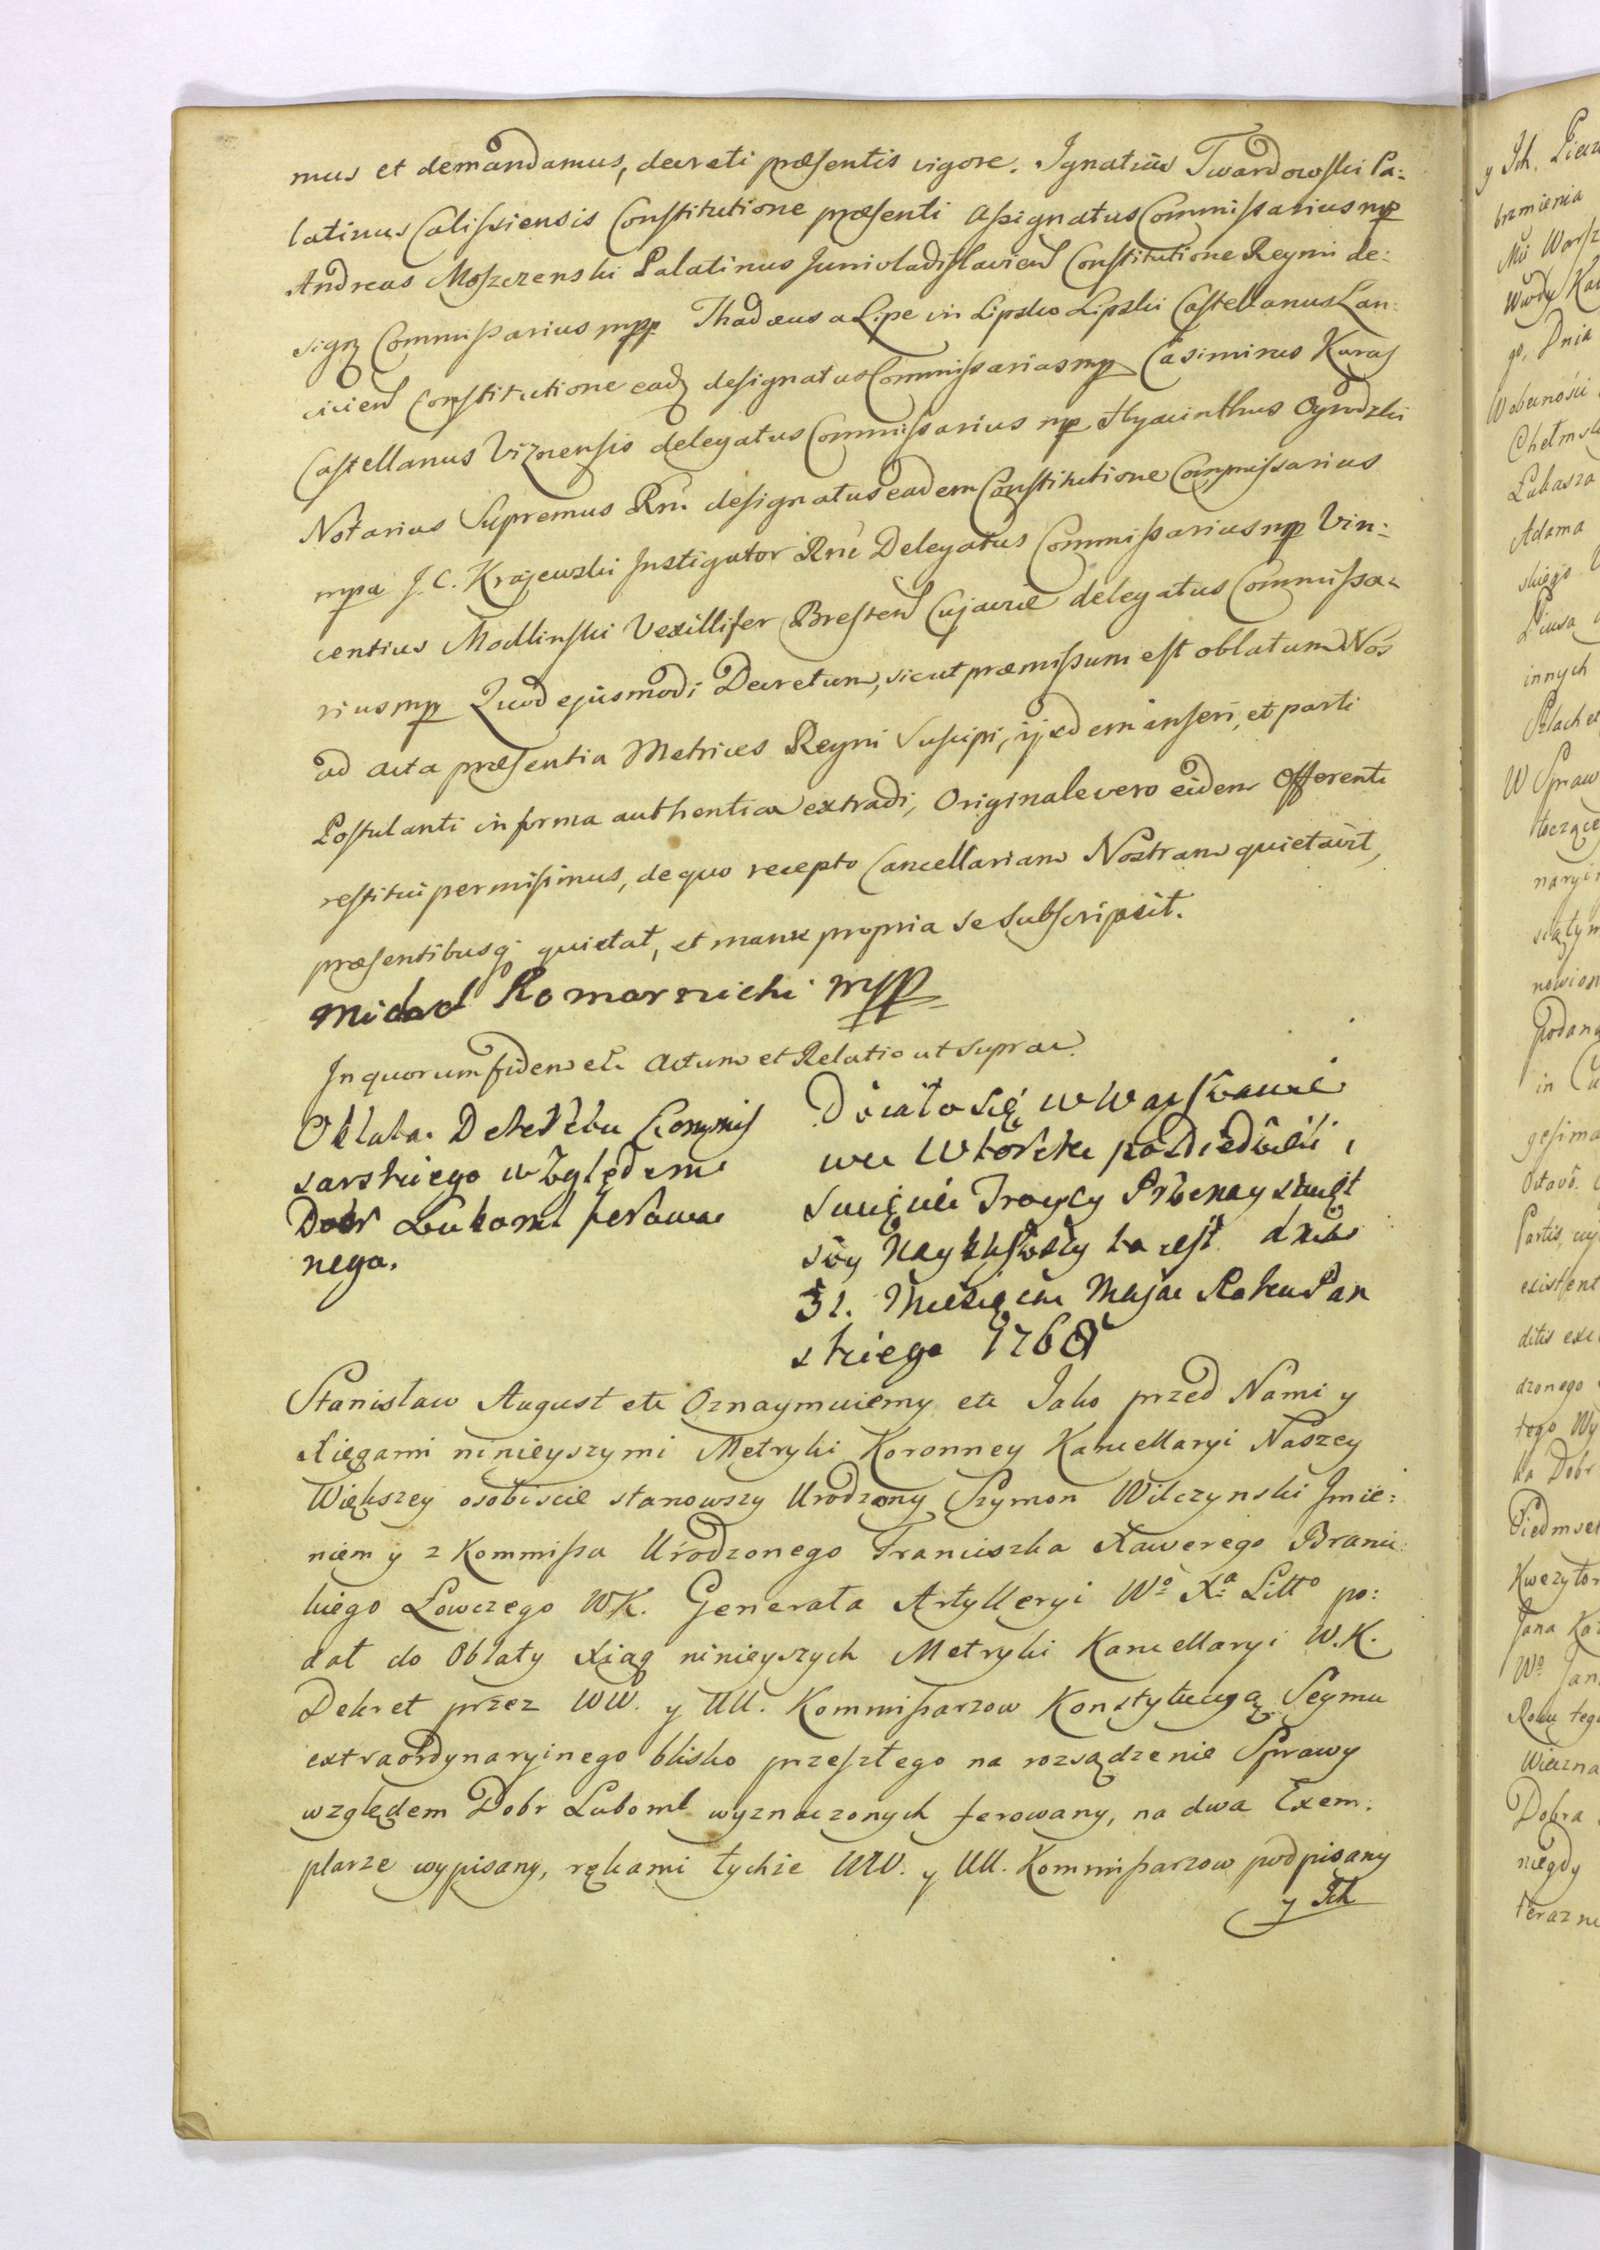 mus et demandamus, decreti præsentis vigore. Ignatius Twardowski Pa:
latinus Calissiensis Constitutione præsenti Assignatus Commissarius mp
Andreas Moszczenski Palatinus Junivladislavien Constitutione Regni de:
sigz Commissarius mpp. Thadæus a Lipe in Lipsko Lipski Castellanus Lan:
cicien Constitutione eadz designatus Commissarius mp Casimirus Karas
Castellanus Viznensis delegatus Commissarius mp Hyacinthus Ogrodzki
Notarius Supremus Rni designatus eadem Constitutione Commissarius
mpa J. C. Krajewski Instigator Rni Delegatus Commissarius mp Vin:
centius Modlinski Vexillifer Bresten Cujaviæ delegatus Commissa:
rius mp Quod ejusmodi Decretum, sicut præmissum est oblatum Nos
ad acta præsentia Metrices Regni Suscipi, ijsdem inseri, et parti
Postulanti in forma authentica extradi, Originale vero eidem Offerenti
restitui permisimus, de quo recepto Cancellariam Nostram quietavit,
præsentibusq quietat, et manu propria se Subscripsit.
Michał Komarnicki mpp
In quorum fidem etc Actum et Relatio ut supra.
Oblata Dekretu Commis
sarskiego względem
Dobr Luboml ferowa
nego.
Działo się w Warszawie
we Wtorek po Niedzieli
Swięcie Troycy Przenayswięt
szy Nayblizszy to iest dnia
31. Miesiąca Maja Roku Pan
skiego 1768
Stanisław August etc Oznaymuiemy etc Jako przed Nami y
Xięgami ninieyszymi Metryki Koronney Kancellaryi Naszey
Większey osobiscie stanowszy Urodzony Szymon Wilczynski Jmie:
niem y z Kommissa Urodzonego Franciszka Xawerego Branic:
kiego Łowczego WK. Generała Artylleryi Wo Xa Litto po:
dał do Oblaty Xiąg ninieyszych Metryki Kancellaryi W.K.
Dekret przez WW. y UU. Kommissarzow Konstytucyą Seymu
extraordynaryjnego blisko przeszłego na rozsądzenie Sprawy
względem Dobr Luboml wyznaczonych ferowany, na dwa Exem:
plarze wypisany, rękami tychże WW. y UU. Kommissarzow podpisany
y Ich
y Ich. Piecz
brzmienia
Wwdy
go, Dnia
W obecności
Chełmsk
Łukasza
Adama
skiego
innych
Szlachet
W Spraw
toczące
naryi
nowion
Podana
in Cu
gesima
Octavo
Partis, cuj
existent
ditis exe
dzonego
tego Wy
ka Dobr
Siedmset
Kwezytor
Jana Kaz
Wo Jan
Roku tego
Wieczna
Dobra
niegdy
teraz